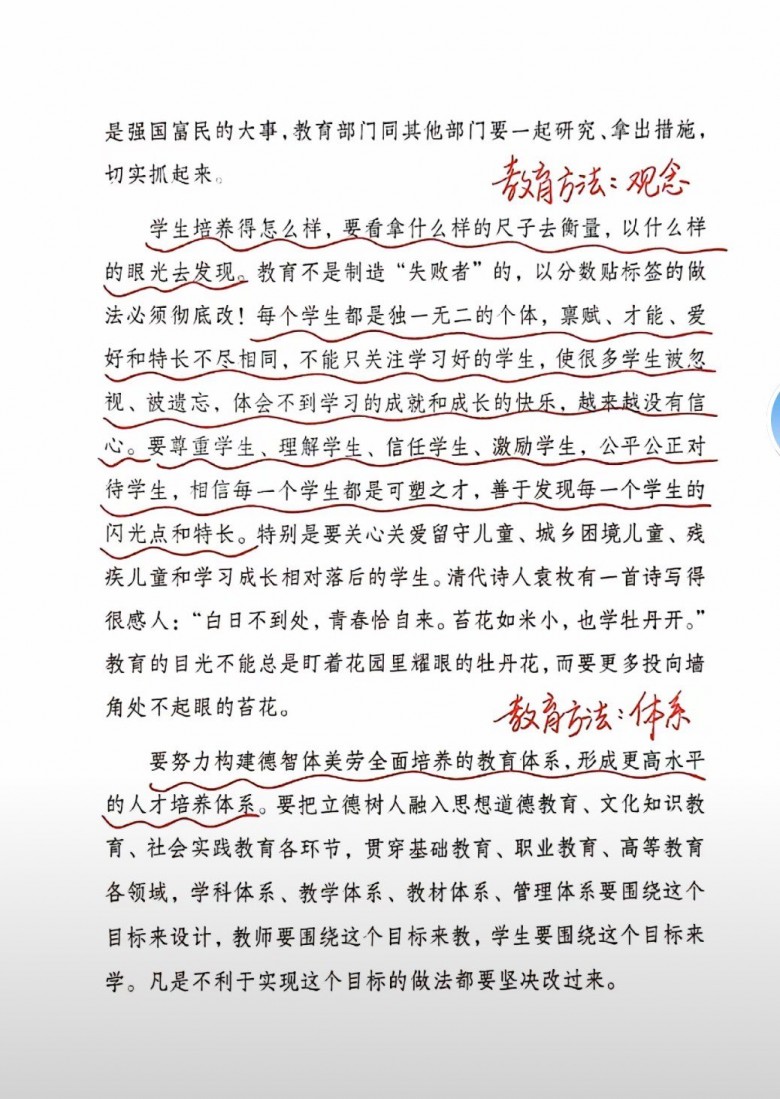 是强国富民的大事，教育部门同其他部门要一起研究、拿出措施，
切实抓起来。
教育方法：观念
学生培养得怎么样，要看拿什么样的尺子去衡量，以什么样
的眼光去发现。教育不是制造“失败者”的，以分数贴标签的做
法必须彻底改！每个学生都是独一无二的个体，禀赋、才能、爱
好和特长不尽相同，不能只关注学习好的学生，使很多学生被忽
视、被遗忘，体会不到学习的成就和成长的快乐，越来越没有信
心。要尊重学生、理解学生、信任学生、激励学生，公平公正对
待学生，相信每一个学生都是可塑之才，善于发现每一个学生的
闪光点和特长。特别是要关心关爱留守儿童、城乡困境儿童、残
疾儿童和学习成长相对落后的学生。清代诗人袁枚有一首诗写得
很感人：“白日不到处，青春恰自来。苔花如米小，也学牡丹开。”
教育的目光不能总是盯着花园里耀眼的牡丹花，而要更多投向墙
角处不起眼的苔花。
教育方法：体系
要努力构建德智体美劳全面培养的教育体系，形成更高水平
的人才培养体系。要把立德树人融入思想道德教育、文化知识教
育、社会实践教育各环节，贯穿基础教育、职业教育、高等教育
各领域，学科体系、教学体系、教材体系、管理体系要围绕这个
目标来设计，教师要围绕这个目标来教，学生要围绕这个目标来
学。凡是不利于实现这个目标的做法都要坚决改过来。